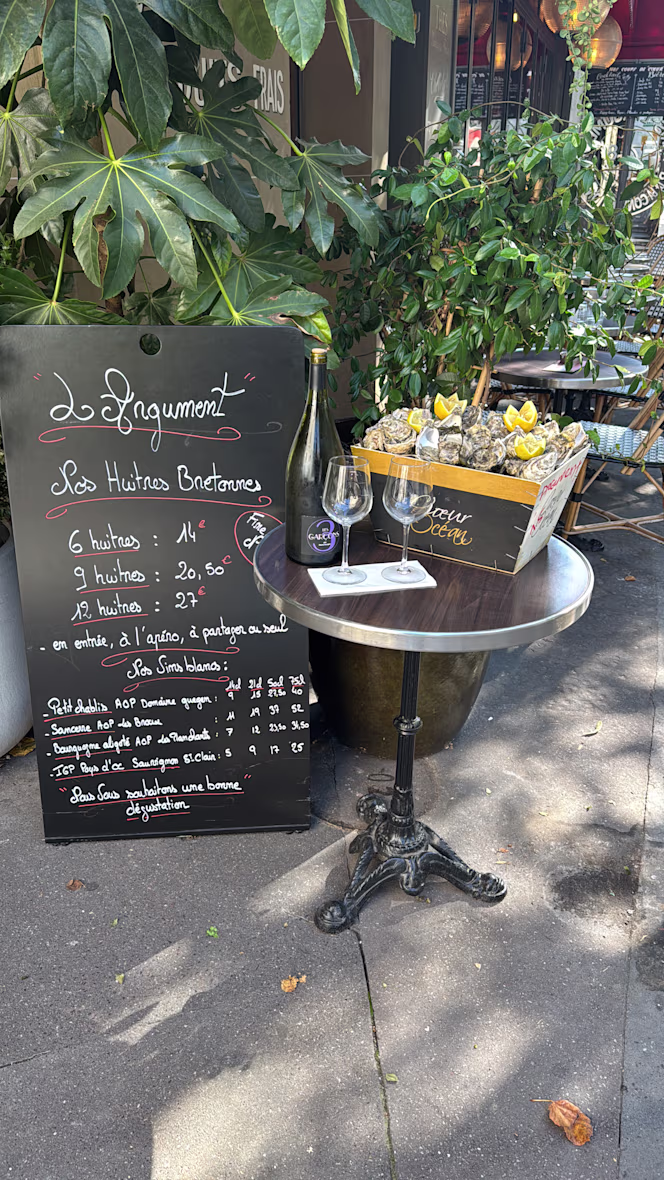 FRAIS
" L'Argument "
Nos Huîtres Bretonnes
6 huîtres : 14€
9 huîtres : 20,50€
12 huîtres : 27€
Fine
- en entrée, à l'apéro, à partager ou seul
Nos Vins blancs :
14cl 21cl 50cl 75cl
- Petit chablis AOP Domaine : 9 15 27,50 40
- Sancerre AOP Les : 11 19 37 52
- Bourgogne aligoté AOP : 7 12 23,50 34,50
- IGP Pays d'oc Sauvignon St Clair : 5 9 17 25
" Nous Vous souhaitons une bonne "
dégustation
LES
3
GARÇONS
Cœur
Océan